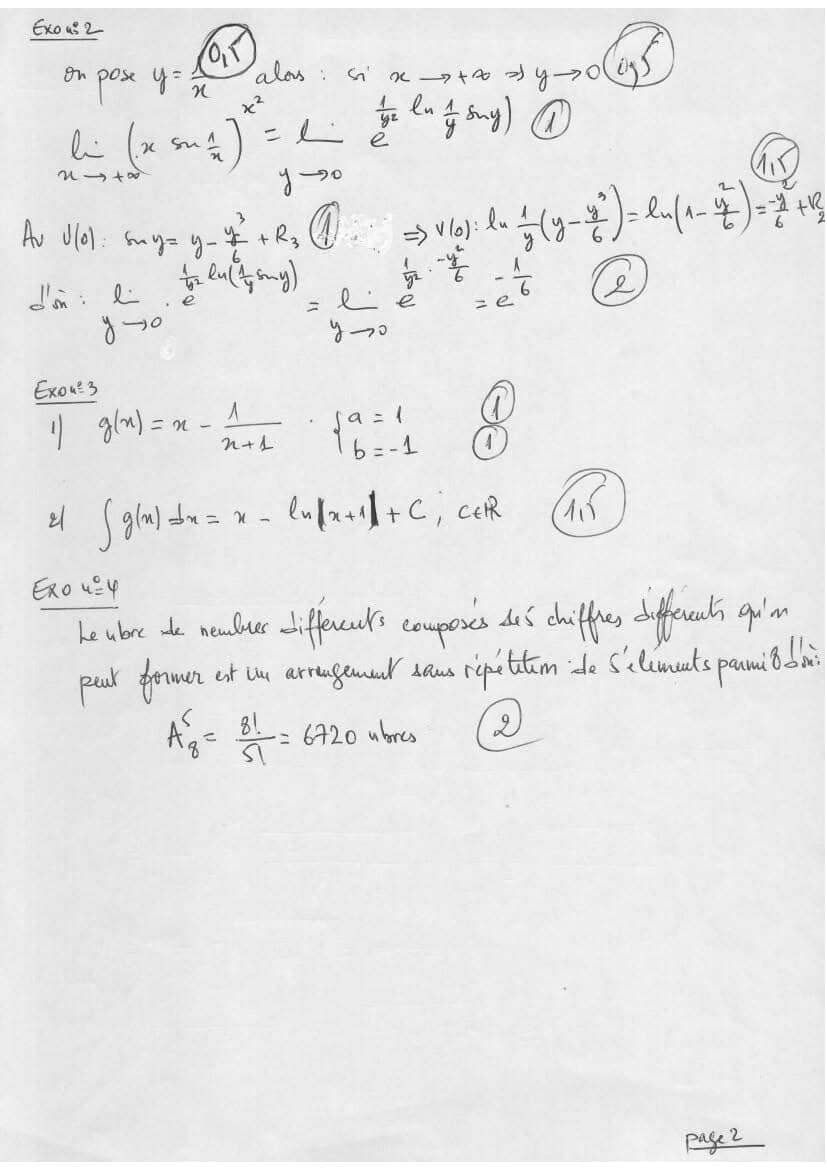 Exo n°2
on pose y = 1/x (0,5) alors : si x → +∞ ⇒ y → 0 (0,5)
lim x→+∞ (x sin 1/x)^x² = lim y→0 e^(1/y² ln 1/y sin y) (1)
Au V(0) : sin y = y - y³/6 + R₃ (1) ⇒ V(0) : ln 1/y (y - y³/6) = ln(1 - y²/6) = -y²/6 + R₂ (1,5)
d'où : lim y→0 . e^(1/y² ln(1/y sin y)) = lim y→0 e^(1/y² . -y²/6) = e^(-1/6) (2)
Exo n°3
1) g(x) = x - 1/(x+1) . { a = 1 (1)
b = -1 (1)
2/ ∫ g(x) dx = x - ln|x+1| + C ; C∈ℝ (1,5)
Exo n°4
Le nbre de nombres différents composés de 5 chiffres différents qu'on
peut former est un arrangement sans répétition de 5 éléments parmi 8 d'où :
A⁵₈ = 8!/5! = 6720 nbres (2)
page 2